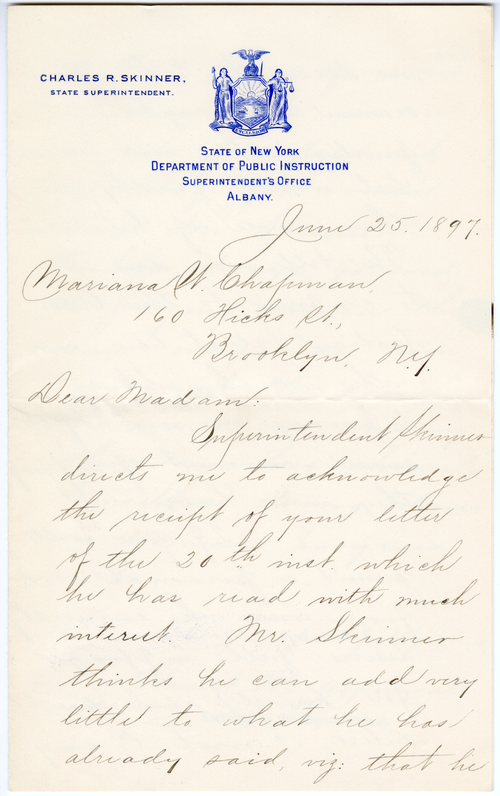 CHARLES R. SKINNER,
STATE SUPERINTENDENT.
STATE OF NEW YORK
DEPARTMENT OF PUBLIC INSTRUCTION
SUPERINTENDENT'S OFFICE
ALBANY.
June 25. 1897.
Mariana W. Chapman.
160 Hicks St.,
Brooklyn, N.Y.
Dear Madam:
Superintendent Skinner
directs me to acknowledge
the receipt of your letter
of the 20th inst. which
he has read with much
interest. Mr. Skinner
thinks he can add very
little to what he has
already said, viz: that he